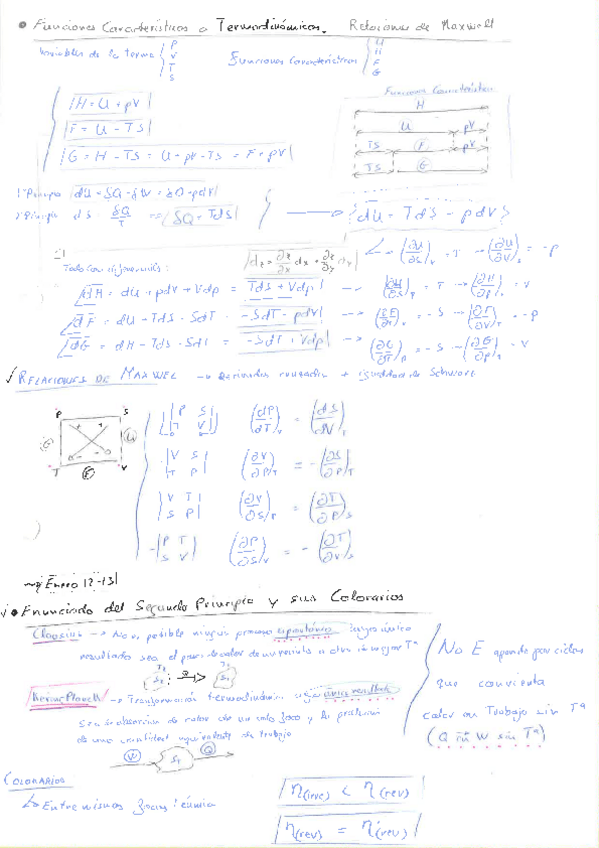 • Funciones Características o Termodinámicas. Relaciones de Maxwell
Variables de la termo { P V T S
Funciones Características { U H F G
H = U + pV
F = U - TS
G = H - TS = U + pV - TS = F + pV
Funciones Características
H
U pV
TS F pV
TS G
1º Principio dU = δQ - δW = δQ - pdV
2º Principio dS = δQ/T → δQ = TdS
dU = TdS - pdV
dz = ∂z/∂x dx + ∂z/∂y dy
(∂U/∂S)v = T → (∂U/∂V)s = -p
dH = dU + pdV + Vdp = TdS + Vdp → (∂H/∂S)p = T → (∂H/∂p)s = V
dF = dU - TdS - SdT = -SdT - pdV → (∂F/∂T)v = -S → (∂F/∂V)T = -p
dG = dH - TdS - SdT = -SdT + Vdp → (∂G/∂T)p = -S → (∂G/∂p)T = V
✓ RELACIONES DE MAXWEL → Derivadas cruzadas + igualdad de Schwarz
P S
T V
|P S| |T V| (∂P/∂T)v = (∂S/∂V)T
|V S| |T P| (∂V/∂T)P = -(∂S/∂P)T
|V T| |S P| (∂V/∂S)P = (∂T/∂P)S
-|P T| |S V| (∂P/∂S)v = -(∂T/∂V)S
Enero 12-13
✓ • Enunciado del Segundo Principio y sus Colorarios
Clausius → No es posible ningun proceso espontáneo cuyo único
resultado sea el paso de calor de un recinto a otro de mayor Tª
Kelvin Planck → Transformación termodinámica cuyo único resultado
sea la absorción de calor de un solo foco y la producción
de una cantidad equivalente de trabajo
W S1 Q
No E
que convierta
calor en Trabajo sin Tª
(Q en W sin Tª)
COLORARIOS
↳ Entre mismos focos térmicos
η(irrev) < η(rev)
η(rev) = η(rev)